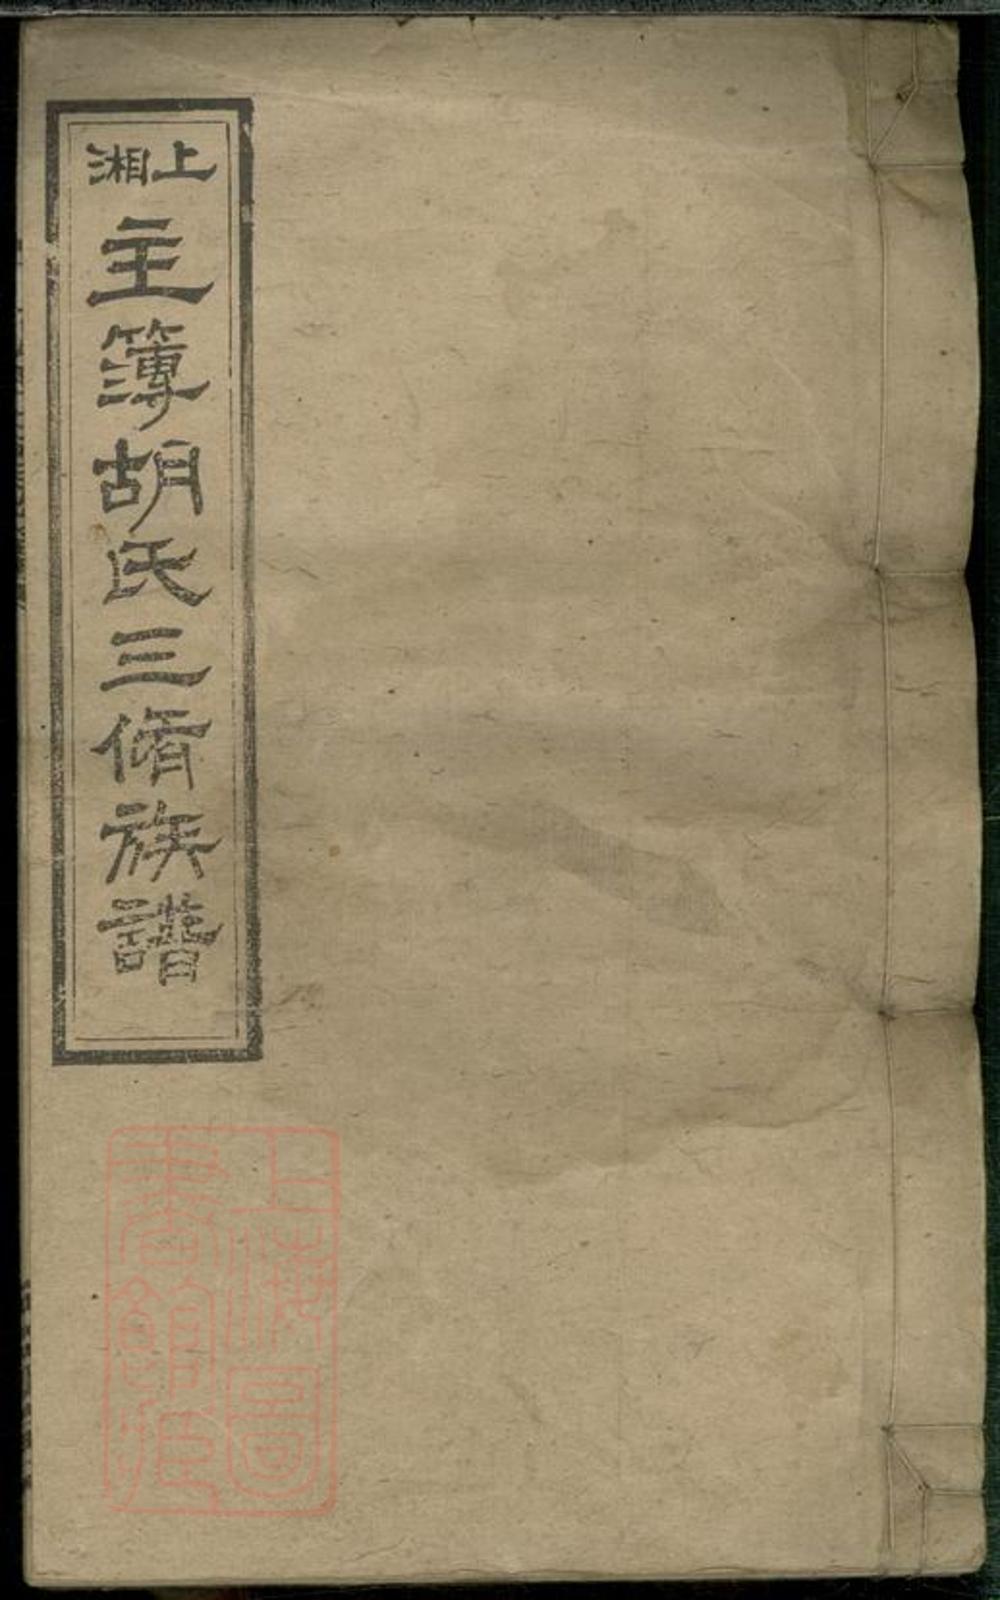 上湘
主簿胡氏三脩族譜
上海圖
書館藏